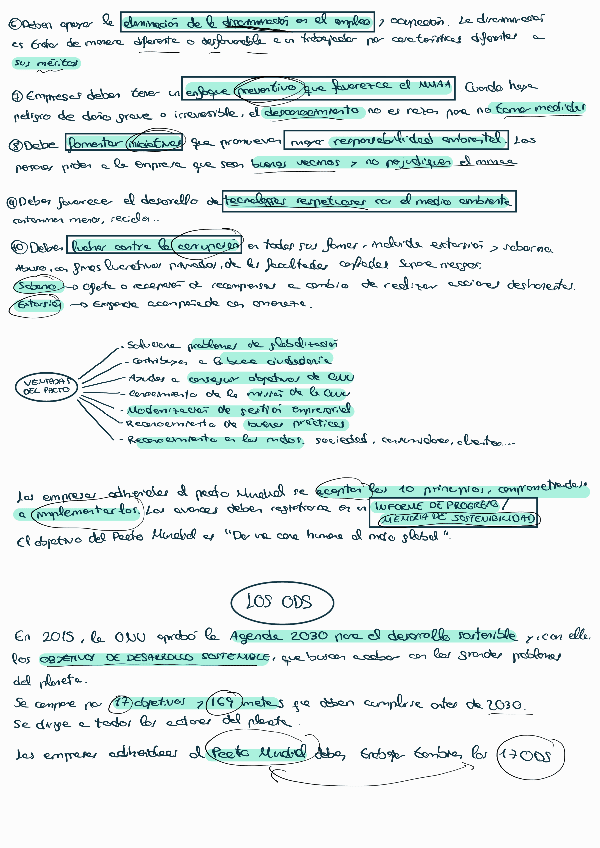 ⑥ Deben apoyar la eliminación de la discriminación en el empleo y ocupación. La discriminación
es tratar de manera diferente o desfavorable a un trabajador por características diferentes a
sus méritos
⑦ Empresas deben tener un enfoque preventivo que favorezca el MMAA Cuando haya
peligro de daño grave o irreversible, el desconocimiento no es razón para no tomar medidas
⑧ Debe fomentar iniciativas que promuevan mayor responsabilidad ambiental. Las
personas piden a la empresa que sean buenos vecinos y no perjudiquen el
⑨ Deben favorecer el desarrollo de tecnologías respetuosas con el medio ambiente
contaminen menos, reciclar..
⑩ Deben luchar contra la corrupción en todas sus formas, incluida extorsión y soborno
Abuso, con fines lucrativos privados, de las facultades confiadas
Soborno → Oferta o recepción de recompensas a cambio de realizar acciones deshonestas.
Extorsión → Exigencia acompañada de amenaza.
VENTAJAS DEL PACTO
- Soluciona problemas de globalización
- Contribuyen a la buena ciudadanía
- Ayudas a conseguir objetivos de ONU
- Conocimiento de la misión de la ONU
- Modernización de gestión empresarial
- Reconocimiento de buenas prácticas
- Reconocimiento en los medios, sociedad, consumidores, clientes...
Las empresas adheridas al pacto Mundial se aceptan los 10 principios, comprometiéndose
a implementarlos. Los avances deben registrarse en un INFORME DE PROGRESO /
MEMORIA DE SOSTENIBILIDAD
El objetivo del Pacto Mundial es "Dar una cara humana al mercado global".
LOS ODS
En 2015, la ONU aprobó la Agenda 2030 para el desarrollo sostenible y, con ella,
los OBJETIVOS DE DESARROLLO SOSTENIBLE, que buscan acabar con los grandes problemas
del planeta.
Se compone por 17 objetivos y 169 metas que deben cumplirse antes de 2030.
Se dirige a todos los actores del planeta.
Las empresas adheridas al Pacto Mundial deben trabajar también los 17 ODS